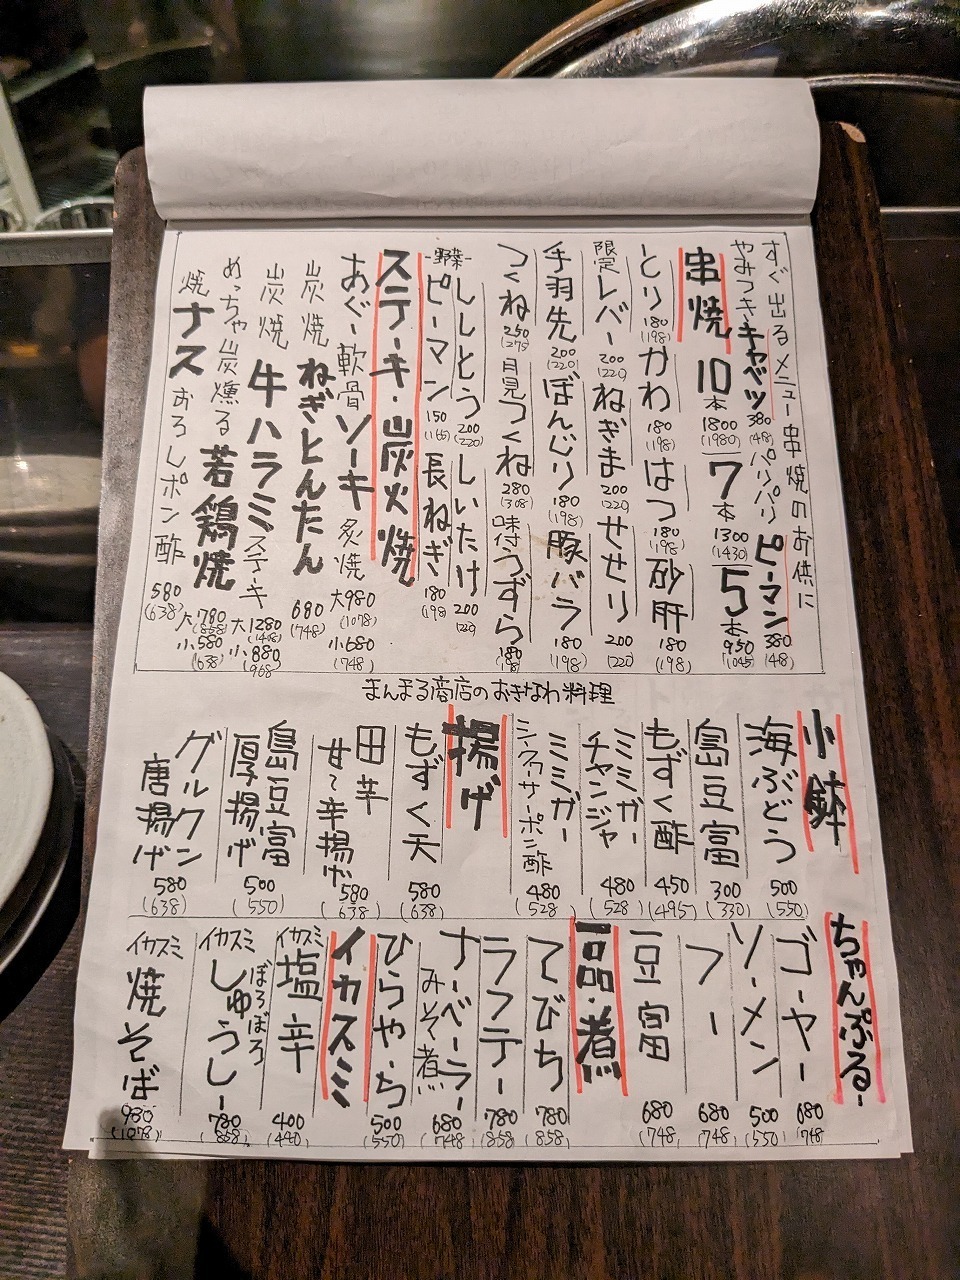 すぐ出るメニュー串焼のお供に
やみつきキャベツ 380 (418) パリパリピーマン 380 (418)
串焼 10本 1800 (1980) 7本 1300 (1430) 5本 950 (1045)
とり 180 (198) かわ 180 (198) はつ 180 (198) 砂肝 180 (198)
限定レバー 200 (220) ねぎま 200 (220) せせり 200 (220)
手羽先 200 (220) ぼんじり 180 (198) 豚バラ 180 (198)
つくね 250 (275) 月見つくね 280 (308) 味付うずら 180 (198)
-野菜- ししとう 200 (220) しいたけ 200 (220)
ピーマン 150 (165) 長ねぎ 180 (198)
ステーキ・炭火焼
あぐー軟骨ソーキ炙焼 大980 (1078) 小680 (748)
炭焼ねぎとんたん 680 (748)
炭焼牛ハラミステーキ 大1280 (1408) 小880 (968)
めっちゃ炭燻る若鶏焼 大780 (858) 小580 (638)
焼ナスおろしポン酢 580 (638)
まんまる商店のおきなわ料理
小鉢
海ぶどう 500 (550)
島豆富 300 (330)
もずく酢 450 (495)
ミミガーチャンジャ 480 (528)
ミミガーシークヮーサーポン酢 480 (528)
揚げ
もずく天 580 (638)
田芋甘辛揚げ 580 (638)
島豆富厚揚げ 500 (550)
グルクン唐揚げ 580 (638)
ちゃんぷるー
ゴーヤー 680 (748)
ソーメン 500 (550)
フー 680 (748)
豆富 680 (748)
一品・煮
てびち 780 (858)
ラフテー 780 (858)
ナーベーラーみそ煮 680 (748)
ひらやーち 500 (550)
イカスミ
イカスミ塩辛 400 (440)
イカスミぼろぼろじゅうしー 780 (858)
イカスミ焼そば 980 (1078)